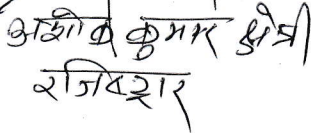 अशोक कुमार क्षेत्री
रजिस्ट्रार